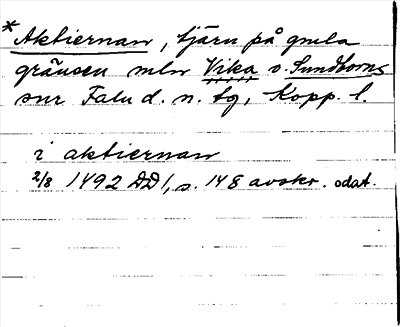 * Aktiernan, tjärn på gmla
gränsen mln Vika o. Sundborns
snr Falu d. n. tg, Kopp. l.
i aktiernan
2/8 1492 DD 1, s. 148 avskr. odat.